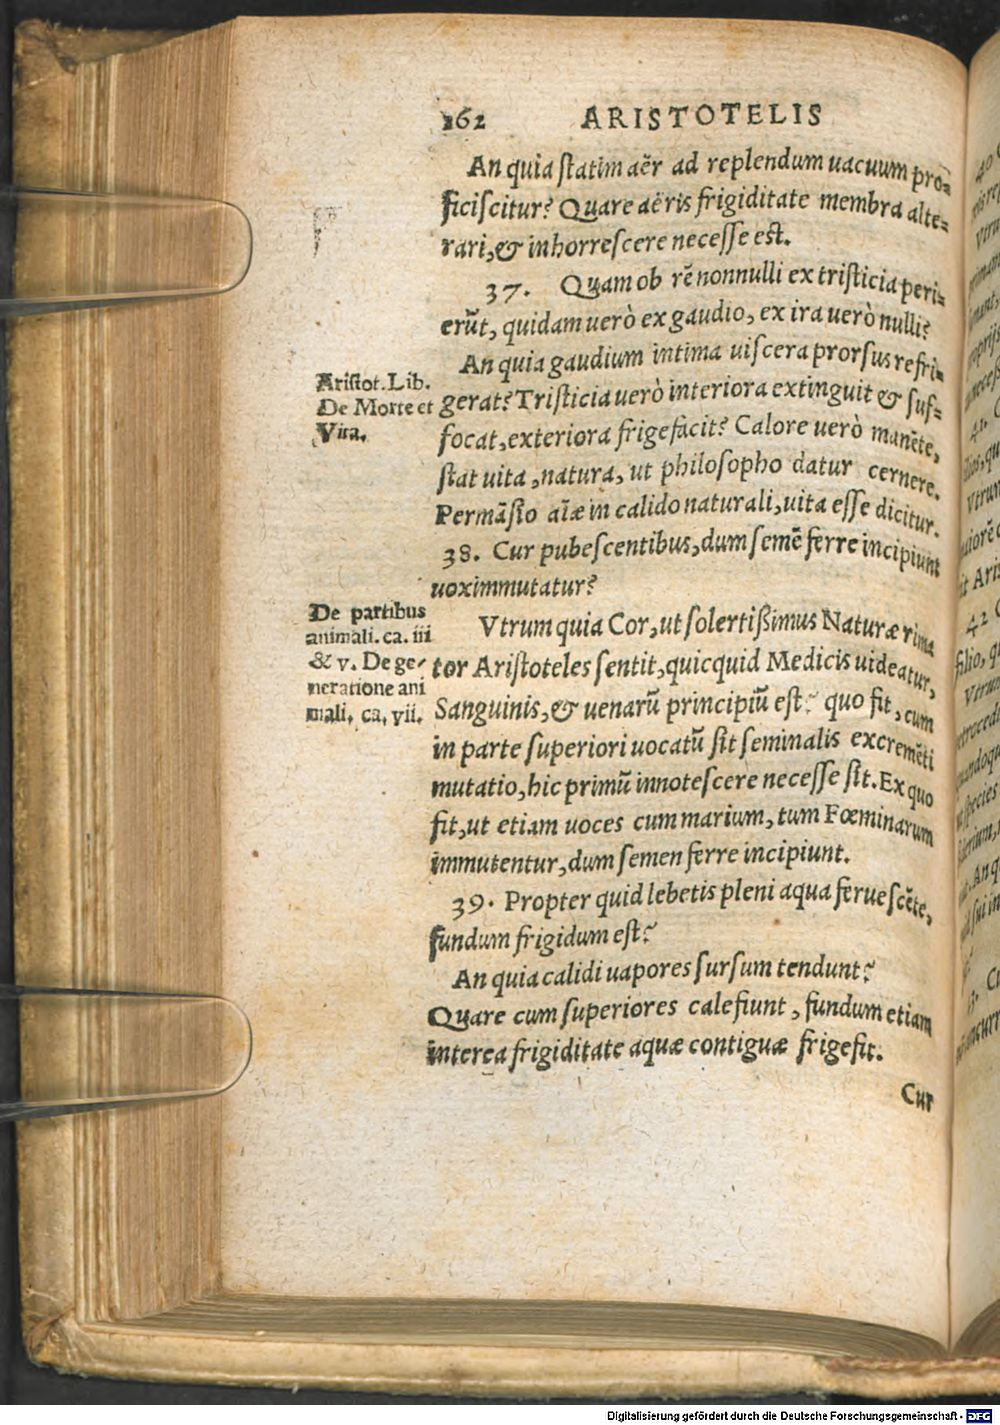 162 ARISTOTELIS
An quia ſtatim aër ad replendum uacuum pro-
ficiſcitur? Quare aëris frigiditate membra alte-
rari, & inhorreſcere neceſſe eſt.
37. Quam ob rē nonnulli ex triſticia peri-
erūt, quidam uerò ex gaudio, ex ira uerò nulli?
An quia gaudium intima uiſcera prorſus refri-
gerat? Triſticia uerò interiora extinguit & ſuf-
focat, exteriora frigefacit? Calore uerò manēte,
ſtat uita, natura, ut philoſopho datur cernere.
Permāſio aīæ in calido naturali, uita eſſe dicitur.
Ariſtot. Lib.
De Morte et
Vita.
38. Cur pubeſcentibus, dum ſemē ferre incipiunt
uox immutatur?
Vtrum quia Cor, ut ſolertißimus Naturæ rima
tor Ariſtoteles ſentit, quicquid Medicis uideatur,
Sanguinis, & uenarū principiū eſt? quo fit, cum
in parte ſuperiori uocatū ſit ſeminalis excremēti
mutatio, hic primū innoteſcere neceſſe ſit. Ex quo
fit, ut etiam uoces cum marium, tum Fœminarum
immutentur, dum ſemen ferre incipiunt.
De partibus
animali. ca. iii
& v. De ge-
neratione ani
mali. ca. vii.
39. Propter quid lebetis pleni aqua ferueſcēte,
fundum frigidum eſt?
An quia calidi uapores ſurſum tendunt?
Quare cum ſuperiores calefiunt, fundum etiam
interea frigiditate aquæ contiguæ frigefit.
Cur
Digitalisierung gefördert durch die Deutsche Forschungsgemeinschaft - DFG